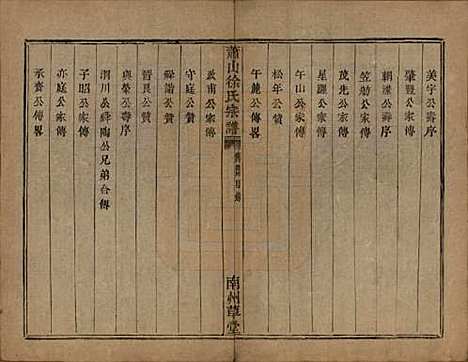 美宇公壽序
肇豐公壽序
朝漢公壽序
笠舫公家傳
茂先公家傳
星躔公家傳
午山公家傳
松年公贊
午麓公家傳
蕭山徐氏宗譜
南州草堂
政南公家傳
守庭公贊
舜諧公贊
晉良公贊
與榮公壽序
渭川公舜陶公兄弟合傳
子昭公家傳
亦庭公家傳
承齋公傳畧